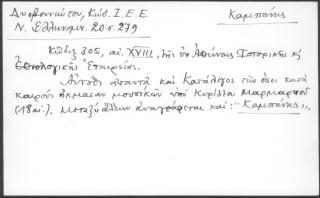 Δυοβουνιώτου, Κώδ. Ι.Ε.Ε.
Καμπάνης
Ν. Ἑλληνομν. 20 σ. 279
Κῶδιξ 305, αἰ. XVIII, τῆς ἐν Ἀθήναις Ἱστορικῆς κ
Ἐθνολογικῆς Ἑταιρείας.
Αὐτόθι ἀπαντᾷ καὶ Κατάλογος τῶν ὅσοι κατὰ
καιροὺς ἤκμασαν μουσικῶν ὑπὸ Κυρίλλου Μαρμαρηνοῦ
(18 αἰ.). Μεταξὺ ἄλλων ἀναγράφεται καὶ: "Καμπάνης".